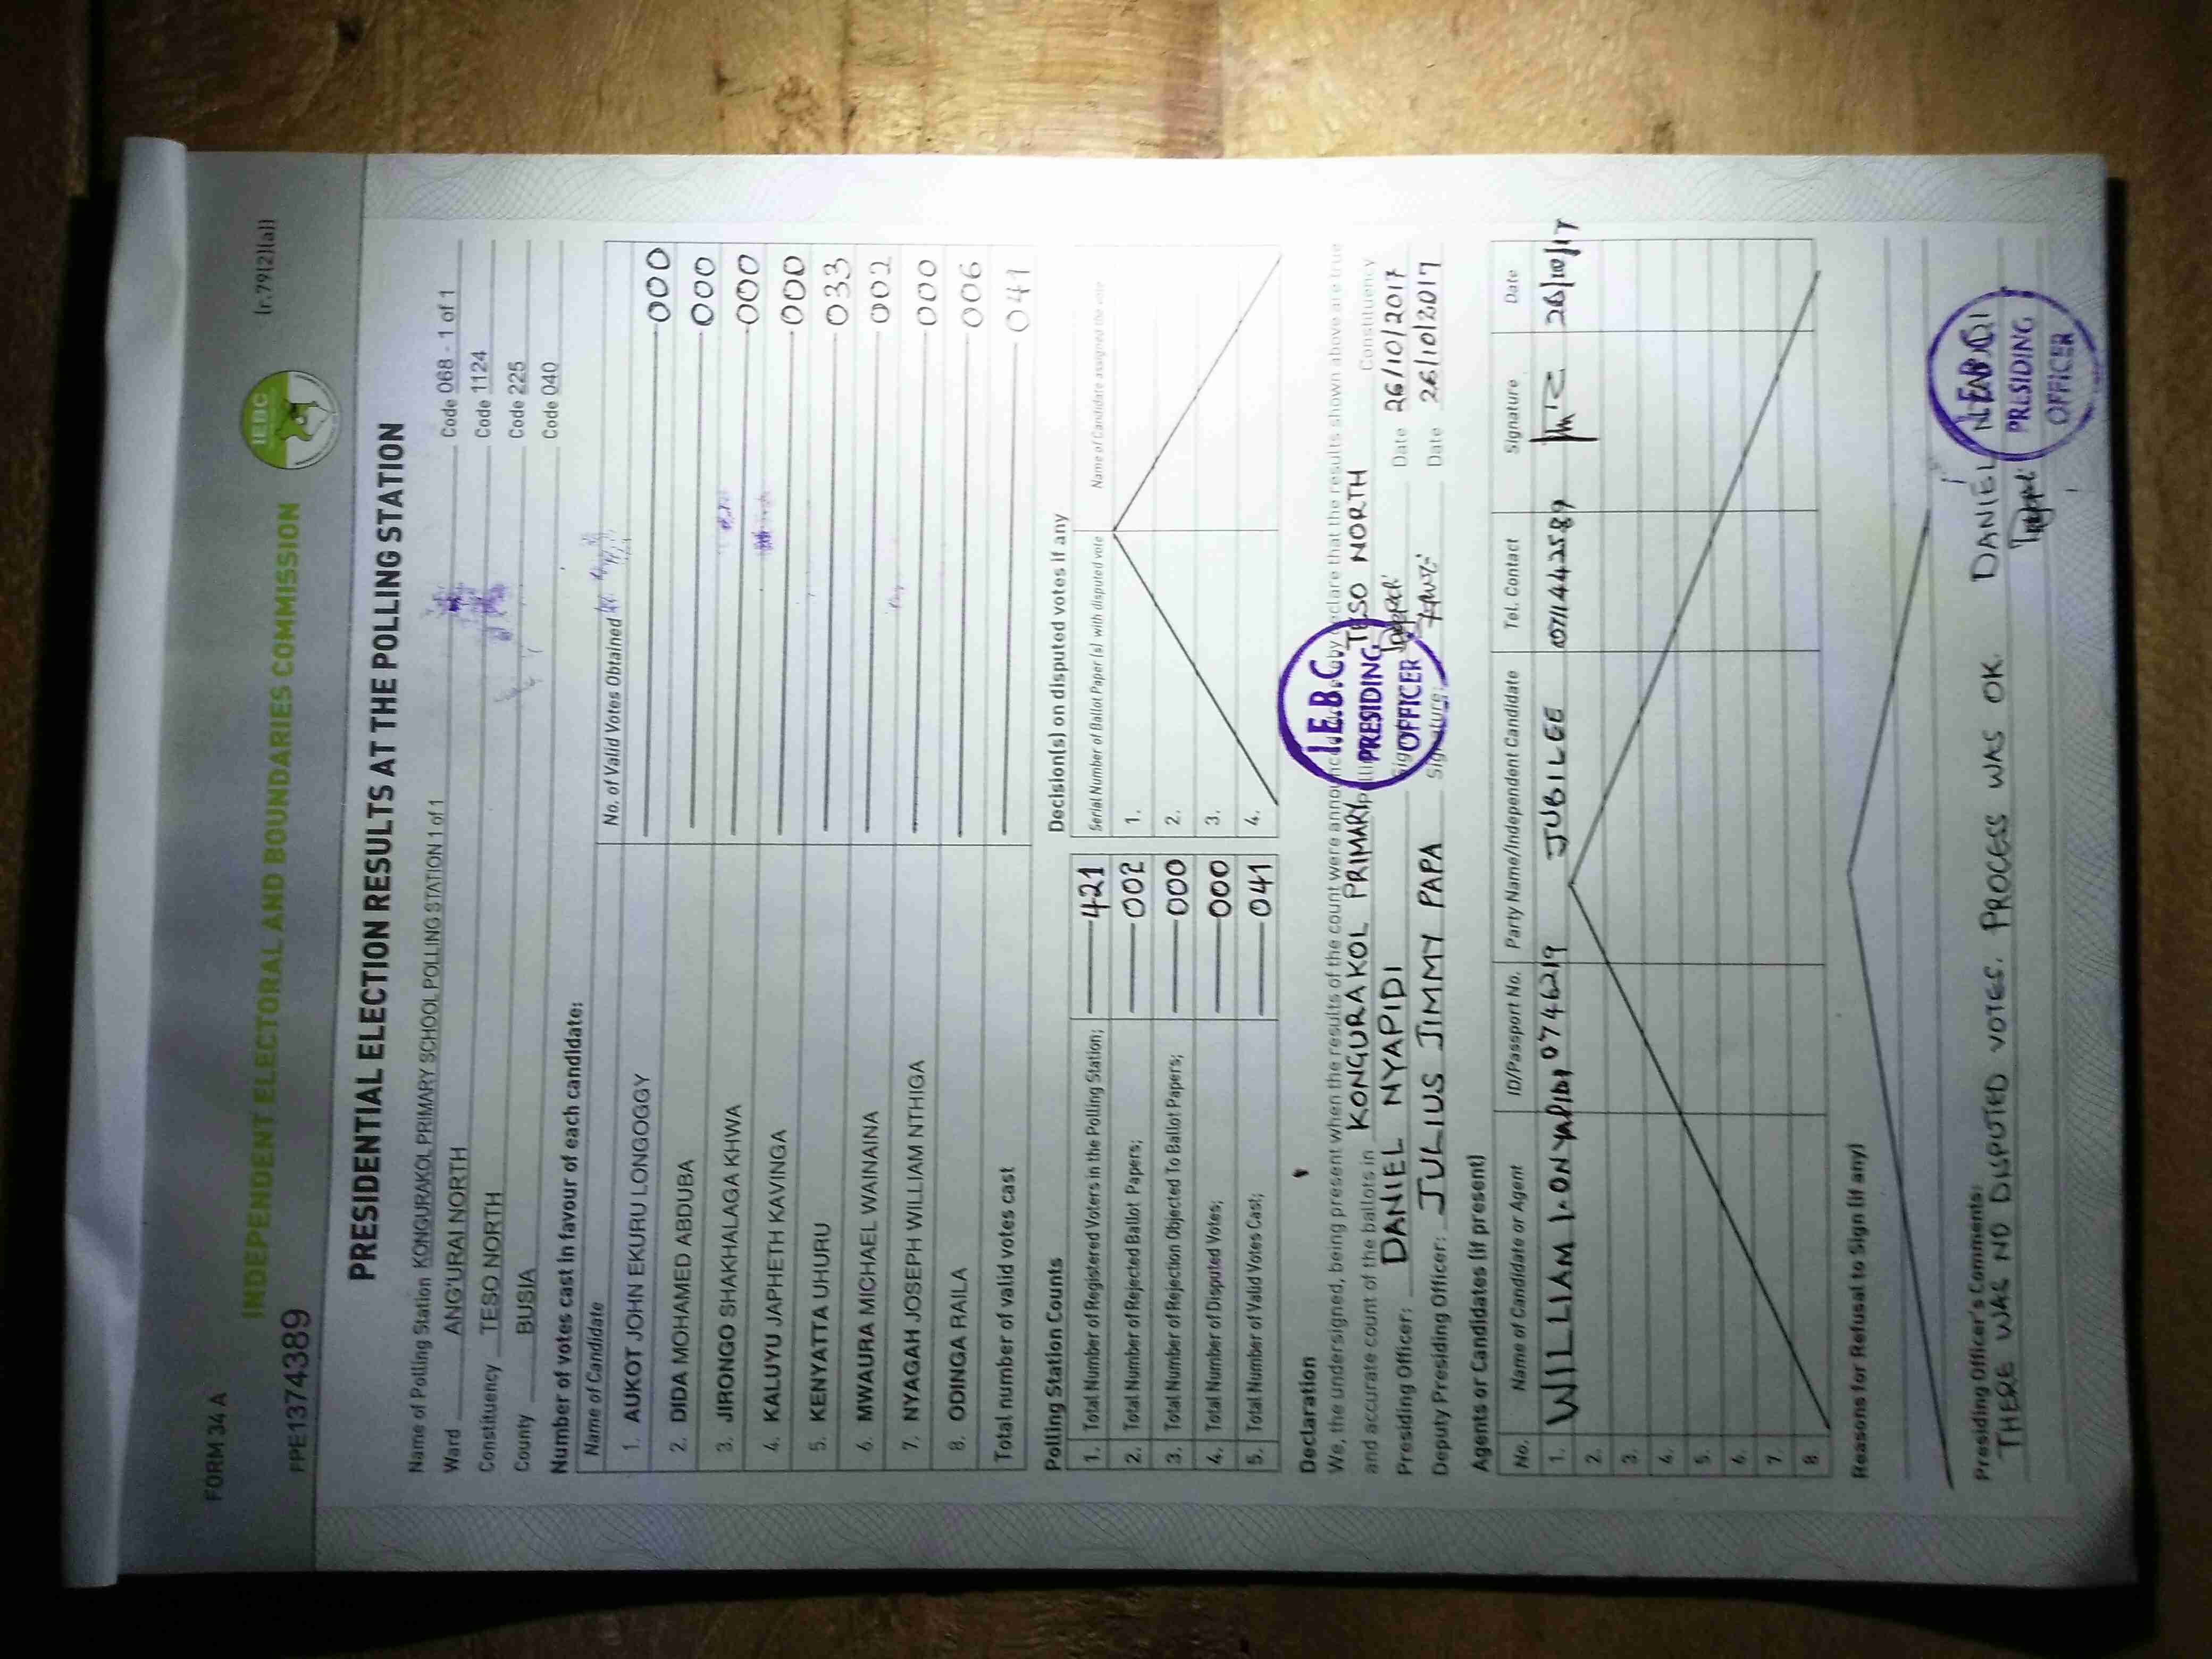 FORM 34 A
(r.79(2)(a))
IEBC
INDEPENDENT ELECTORAL AND BOUNDARIES COMMISSION
PPE1374389
PRESIDENTIAL ELECTION RESULTS AT THE POLLING STATION
Name of Polling Station KONGURAKOL PRIMARY SCHOOL POLLING STATION 1 of 1 Code 068 - 1 of 1
Ward ANG'URAI NORTH Code 1124
Constituency TESO NORTH Code 225
County BUSIA Code 040
Number of votes cast in favour of each candidate:
Name of Candidate No. of Valid Votes Obtained
1. AUKOT JOHN EKURU LONGOGGY 000
2. DIDA MOHAMED ABDUBA 000
3. JIRONGO SHAKHALAGA KHWA 000
4. KALUYU JAPHETH KAVINGA 000
5. KENYATTA UHURU 033
6. MWAURA MICHAEL WAINAINA 002
7. NYAGAH JOSEPH WILLIAM NTHIGA 000
8. ODINGA RAILA 006
Total number of valid votes cast 041
Polling Station Counts
1. Total Number of Registered Voters in the Polling Station; 421
2. Total Number of Rejected Ballot Papers; 002
3. Total Number of Rejection Objected To Ballot Papers; 000
4. Total Number of Disputed Votes; 000
5. Total Number of Valid Votes Cast; 041
Decision(s) on disputed votes if any
Serial Number of Ballot Paper (s) with disputed vote Name of Candidate assigned the vote
1.
2.
3.
4.
Declaration
We, the undersigned, being present when the results of the count were announced, declare that the results shown above are true
and accurate count of the ballots in KONGURAKOL PRIMARY polling TESO NORTH Constituency
Presiding Officer: DANIEL NYAPIDI Date 26/10/2017
Deputy Presiding Officer: JULIUS JIMMY PAPA Signature: Date 26/10/2017
I.E.B.C.
PRESIDING
OFFICER
Agents or Candidates (if present)
No. Name of Candidate or Agent ID/Passport No. Party Name/Independent Candidate Tel. Contact Signature Date
1. WILLIAM 0746219 JUBILEE 0711442589 26/10/17
2.
3.
4.
5.
6.
7.
8.
Reasons for Refusal to Sign (if any)
Presiding Officer's Comments:
THERE WAS NO DISPUTED VOTES. PROCESS WAS OK. DANIEL
PRESIDING
OFFICER